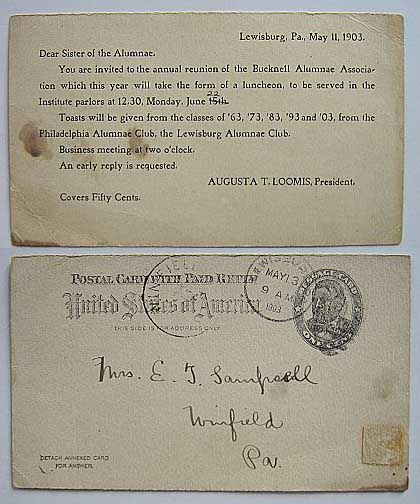 Lewisburg, Pa., May 11, 1903.
Dear Sister of the Alumnae.
You are invited to the annual reunion of the Bucknell Alumnae Associa-
tion which this year will take the form of a luncheon, to be served in the
Institute parlors at 12.30, Monday, June 15th. 22
Toasts will be given from the classes of '63, '73, '83, '93 and '03, from the
Philadelphia Alumnae Club, the Lewisburg Alumnae Club.
Business meeting at two o'clock.
An early reply is requested.
AUGUSTA T. LOOMIS, President.
Covers Fifty Cents.
POSTAL CARD WITH PAID REPLY
United States of America
THIS SIDE IS FOR ADDRESS ONLY
LEWISBURG
MAY 13
9 AM
1903
Mrs. E. T. Sampsell
Winfield
Pa.
DETACH ANNEXED CARD
FOR ANSWER.